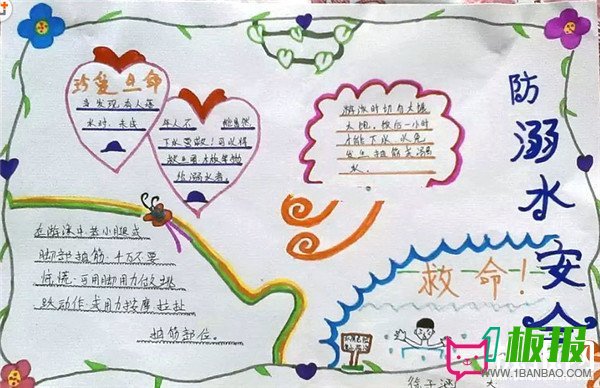 防溺水安全
珍爱生命
当发现有人落
水时,未成
年人不 能贸然
下水营救!可以将
救生圈
给溺水者。
游泳时切勿太饿
太饱,饭后一小时
才能下水,以免
发生抽筋
水。
在游泳中若小腿或
脚部抽筋,千万不要
惊慌,可用脚用力做跳
跃动作,或用力按摩拉扯
抽筋部位。
救命!
1板报
WWW.1BANBAO.COM